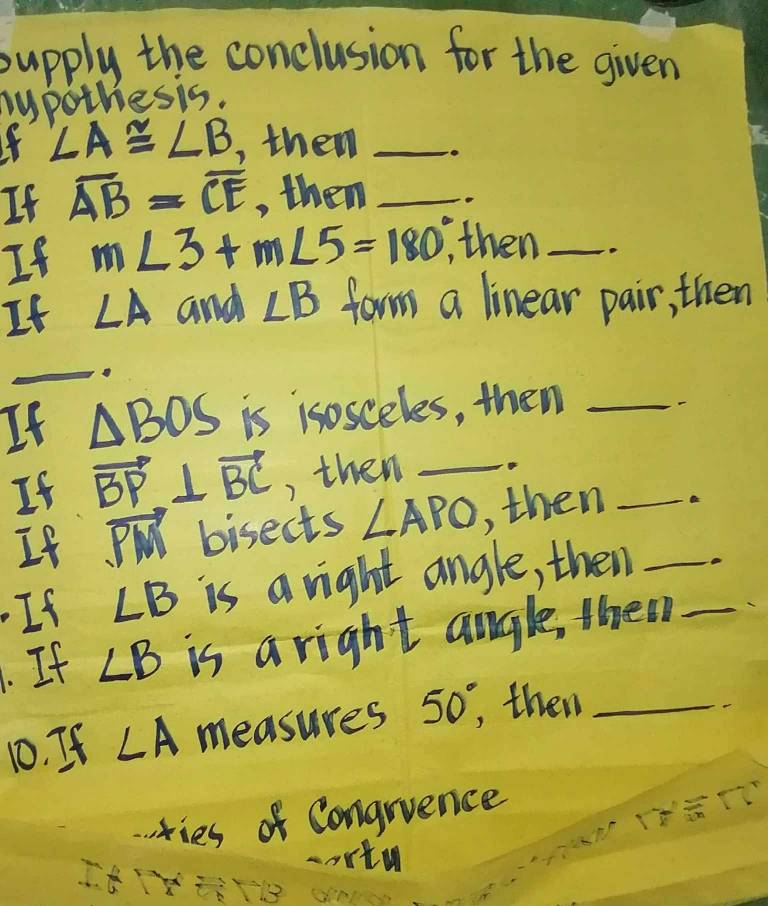 supply the conclusion for the given
hypothesis.
If ∠A ≅ ∠B, then ___.
If A̅B̅ = C̅E̅, then ___.
If m∠3 + m∠5 = 180°, then ___.
If ∠A and ∠B form a linear pair, then
___.
If △BOS is isosceles, then ___.
If BP⃗ ⊥ BC⃗, then ___.
If PM⃗ bisects ∠APO, then ___.
. If ∠B is a right angle, then ___.
. If ∠B is a right angle, then ___.
10. If ∠A measures 50°, then ___.
of Congrvence